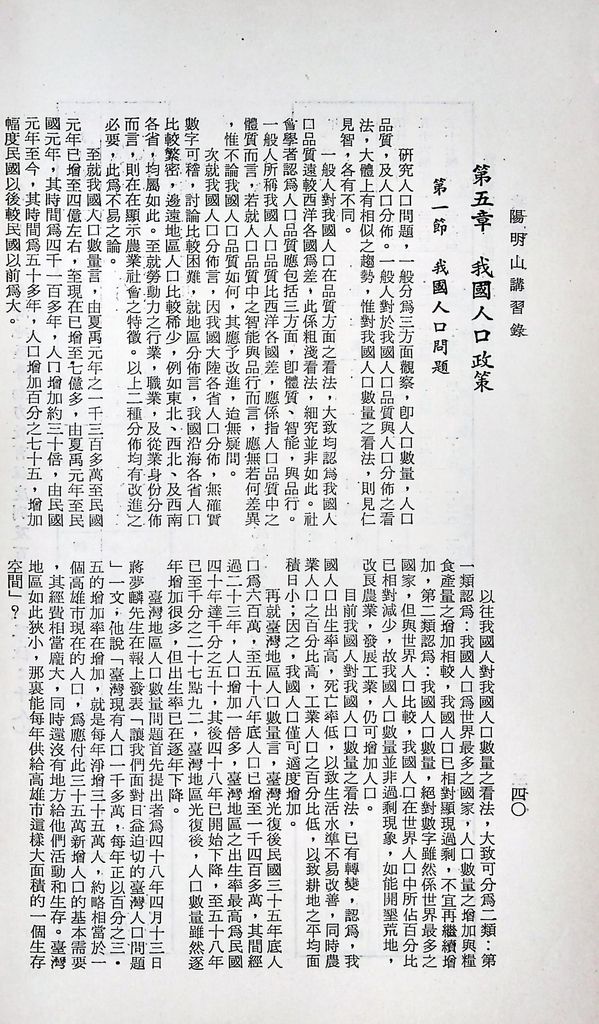 陽明山講習錄
四〇
第五章　我國人口政策
第一節　我國人口問題
研究人口問題，一般分為三方面觀察，卽人口數量，人口
品質，及人口分佈。一般人對於我國人口品質與人口分佈之看
法，大體上有相似之趨勢，惟對我國人口數量之看法，則見仁
見智，各有不同。
一般人對我國人口在品質方面之看法，大致均認爲我國人
口品質遠較西洋各國爲差，此係粗淺看法，細究並非如此。社
會學者認爲人口品質應包括三方面，卽體質、智能，與品行。
一般人所稱我國人口品質比西洋各國差，應係指人口品質中之
體質而言，若就人口品質中之智能與品行而言，應無若何差異
，惟不論我國人口品質如何，其應予改進，迨無疑問。
次就我國人口分佈言，因我國大陸各省人口分佈，無確實
數字可稽，討論比較困難，就地區分佈言，我國沿海各省人口
比較繁密，邊遠地區人口比較稀少，例如東北、西北、及西南
各省，均屬如此。至就勞動力之行業，職業，及從業身份分佈
而言，則在在顯示農業社會之特徵。以上二種分佈均有改進之
必要，此爲不易之論。
至就我國人口數量言，由夏禹元年之一千三百多萬至民國
元年已增至四億左右，至現在已增至七億多，由夏禹元年至民
國元年，其時間爲四千一百多年，人口增加約三十倍，由民國
元年至今，其時間爲五十多年，人口增加百分之七十五，增加
幅度民國以後較民國以前爲大。
以往我國人對我國人口數量之看法，大致可分爲二類：第
一類認爲：我國人口爲世界最多之國家，人口數量之增加與糧
食產量之增加相較，我國人口已相對顯現過剩，不宜再繼續增
加，第二類認爲：我國人口數量，絕對數字雖然係世界最多之
國家，但與世界人口比較，我國人口在世界人口中所佔百分比
已相對減少，故我國人口數量並非過剩現象，如能開墾荒地，
改良農業，發展工業，仍可增加人口。
目前我國人對我國人口數量之看法，已有轉變，認爲，我
國人口出生率高，死亡率低，以致生活水準不易改善，同時農
業人口之百分比高，工業人口之百分比低，以致耕地之平均面
積日小；因之，我國人口僅可適度增加。
再就臺灣地區人口數量言，臺灣光復後民國三十五年底人
口爲六百萬，至五十八年底人口已增至一千四百多萬，其間經
過二十三年，人口增加一倍多，臺灣地區之出生率最高爲民國
四十年達千分之五十，其後四十八年已開始下降，至五十八年
已至千分之二十七點九二，臺灣地區光復後，人口數量雖然逐
年增加很多，但出生率已在逐年下降。
臺灣地區人口數量問題首先提出者爲四十八年四月十三日
蔣夢麟先生在報上發表「讓我們面對日益迫切的臺灣人口問題
」一文，他說「臺灣現有人口一千多萬，每年正以百分之三·
五的增加率在增加，就是每年淨增三十五萬人，約略相當於一
個高雄市現在的人口，爲應付此三十五萬新增人口的基本需要
，其經費相當龐大，同時還沒有地方給他們活動和生存。臺灣
地區如此狹小，那裏能每年供給高雄市這樣大面積的一個生存
空間」？